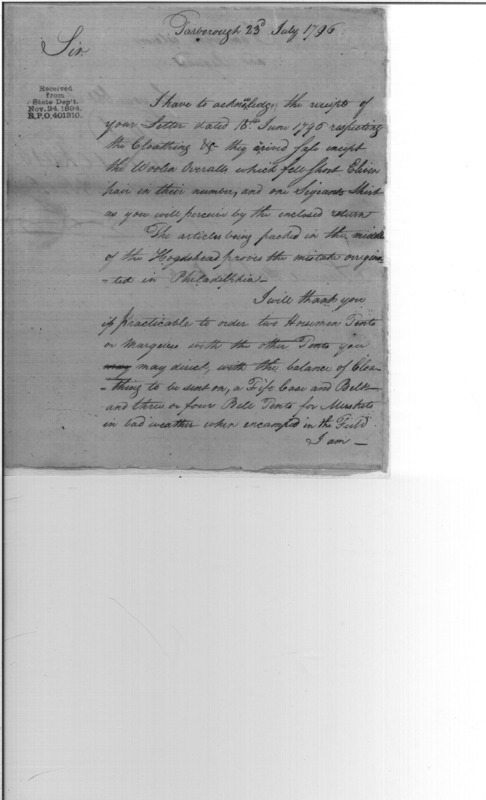 Tarborough 23d July 1796
Sir
Received
from
State Dep't.
Nov. 24, 1894.
R.P.O. 401310.
I have to acknowledge the receipt of
your Letter dated 15th June 1796 respecting
the Cloathing &c they arived safe except
the Woolen Overalls which fell short Eleven
pair in their number, and one Sergeants Shirt
as you will perceive by the enclosed return
The articles being packed in the middle
of the Hogshead proves the mistake origina
-ted in Philadelphia -
I will thank you
if practicable to order two Horsemen Tents
or Marquees with the other Tents you
may may direct, with the balance of Cloa
-thing to be sent on, a Fife Case and Belt
and three or four Bell Tents for Muskets
in bad weather when encamped in the Field
I am -